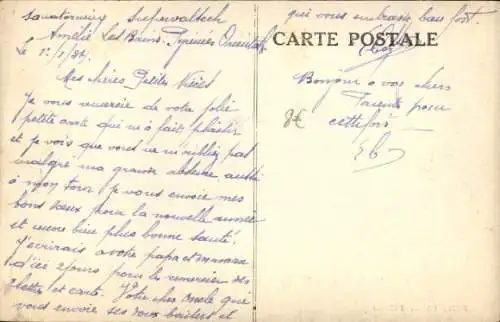 Sanatorium supervaltech
Amélie Les Bains. Pyrénées Orientale
le 1er/1/34.
Mes chères Petites Nièces
Je vous remercie de votre jolie
petite carte qui m'a fait plaisir
et je vois que vous ne m'oubliez pas
malgré ma grande absence aussi
à mon tour je vous envoie mes
bons vœux pour la nouvelle année
et encore bien plus bonne santé.
J'écrirais a votre papa et maman
d'ici 2 jours pour les remercier des
lettre et carte. Votre cher oncle qui
vous envoie ses doux baisers et
qui vous embrasse bien fort.
CARTE POSTALE
Bonjour a vos chers
Parents pour
cette fois
8€